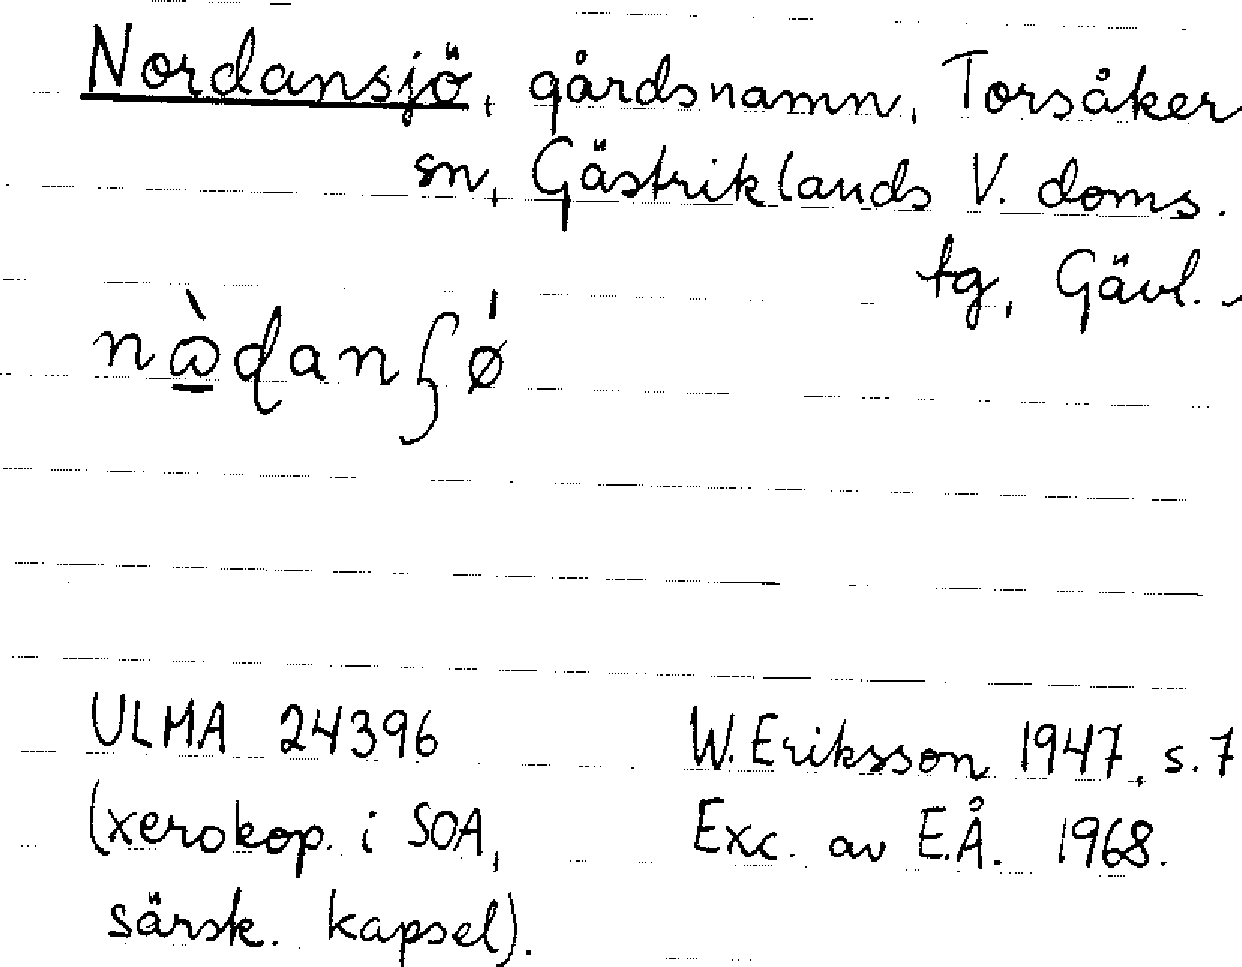 Nordansjö, gårdsnamn, Torsåker
sn, Gästriklands V. doms.
tg, Gävl.
nὼḍanʃǿ
ULMA 24396
(xerokop. i SOA,
särsk. kapsel).
W. Eriksson 1947, s. 7
Exc. av E.Å. 1968.